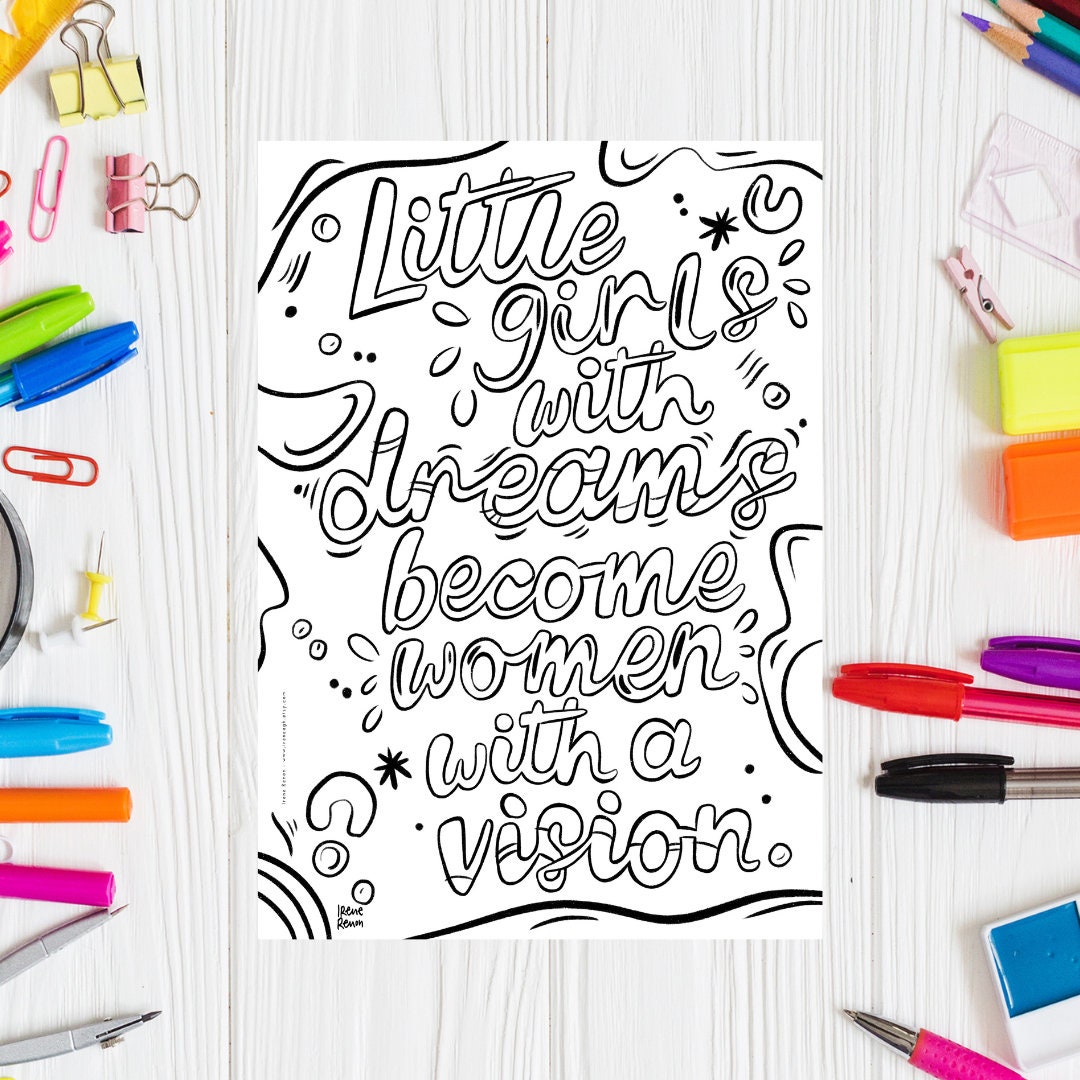 Little
girls
with
dreams
become
women
with a
vision.
Irene
Renon